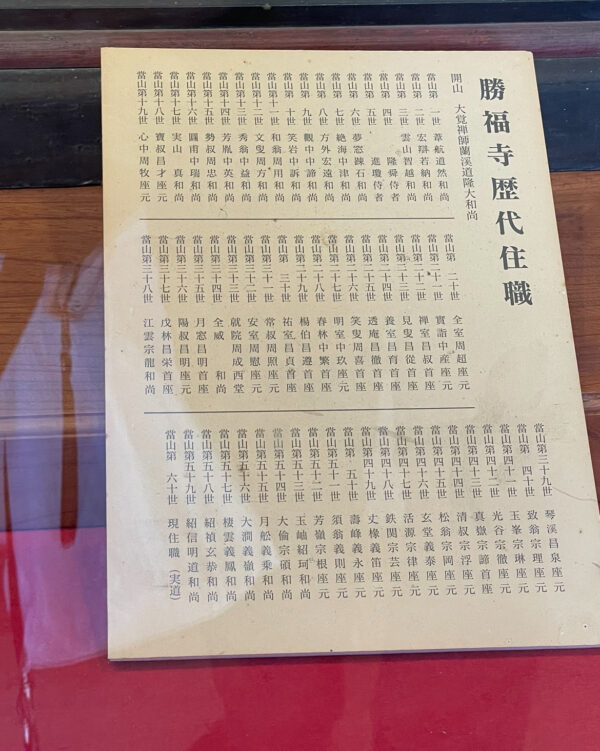 勝福寺歴代住職
開山　大覚禅師蘭溪道隆大和尚
當山第一世　葦航道然和尚
當山第二世　宏辯若納和尚
當山第三世　雲山智越和尚
當山第四世　隆舜侍者
當山第五世　進瓊侍者
當山第六世　夢窓疎石和尚
當山第七世　絶海中津和尚
當山第八世　方外宏遠和尚
當山第九世　觀中中諦和尚
當山第十世　笑岩中訴和尚
當山第十一世　和翁周用和尚
當山第十二世　文叟周方和尚
當山第十三世　秀翁中益和尚
當山第十四世　芳胤中英和尚
當山第十五世　勢叔周忠和尚
當山第十六世　圓甫中瑞和尚
當山第十七世　実山　真和尚
當山第十八世　寶叔昌才座元
當山第十九世　心中周牧座元
當山第二十世　全室周超座元
當山第二十一世　實詣中産座元
當山第二十二世　禅室昌叔首座
當山第二十三世　見叟昌從首座
當山第二十四世　養室昌育首座
當山第二十五世　透庵昌徹首座
當山第二十六世　笑叟周喜首座
當山第二十七世　明室中玖座元
當山第二十八世　春林中繁首座
當山第二十九世　楊伯昌遵首座
當山第三十世　祐室昌貞首座
當山第三十一世　常叔周照座元
當山第三十二世　安室周慰座元
當山第三十三世　就院周成西堂
當山第三十四世　全威　和尚
當山第三十五世　月窓昌明首座
當山第三十六世　陽叔昌明座元
當山第三十七世　戊林昌栄首座
當山第三十八世　江雲宗龍和尚
當山第三十九世　琴溪昌泉座元
當山第四十世　致翁宗理座元
當山第四十一世　玉峯宗琳座元
當山第四十二世　光谷宗徹座元
當山第四十三世　真嶽宗諦首座
當山第四十四世　清叔宗浮座元
當山第四十五世　松翁宗岡座元
當山第四十六世　玄堂義泰座元
當山第四十七世　活源宗律座元
當山第四十八世　鉄関宗芸座元
當山第四十九世　丈椽義笛座元
當山第五十世　壽峰義永座元
當山第五十一世　須翁義則座元
當山第五十二世　芳嶺宗根座元
當山第五十三世　玉岫紹珂和尚
當山第五十四世　大倫宗碩和尚
當山第五十五世　月舩義乗和尚
當山第五十六世　大澗義嶺和尚
當山第五十七世　棲雲義鳳和尚
當山第五十八世　紹禎玄恭和尚
當山第五十九世　紹信明道和尚
當山第六十世　現住職（実道）